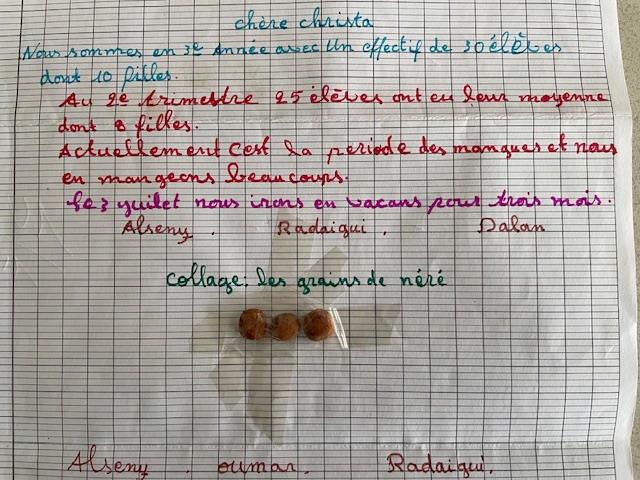 chère christa
Nous sommes en 3e Année avec un effectif de 30 élèves
dont 10 filles.
Au 2e trimestre 25 élèves ont eu leur moyenne
dont 8 filles.
Actuellement c'est la période des mangues et nous
en mangeons beaucoups.
Le 3 yuilet nous irons en vacans pour trois mois.
Alseny . Radaiqui . Dalan
collage: les grains de néré
Alseny . oumar . Radaiqui.